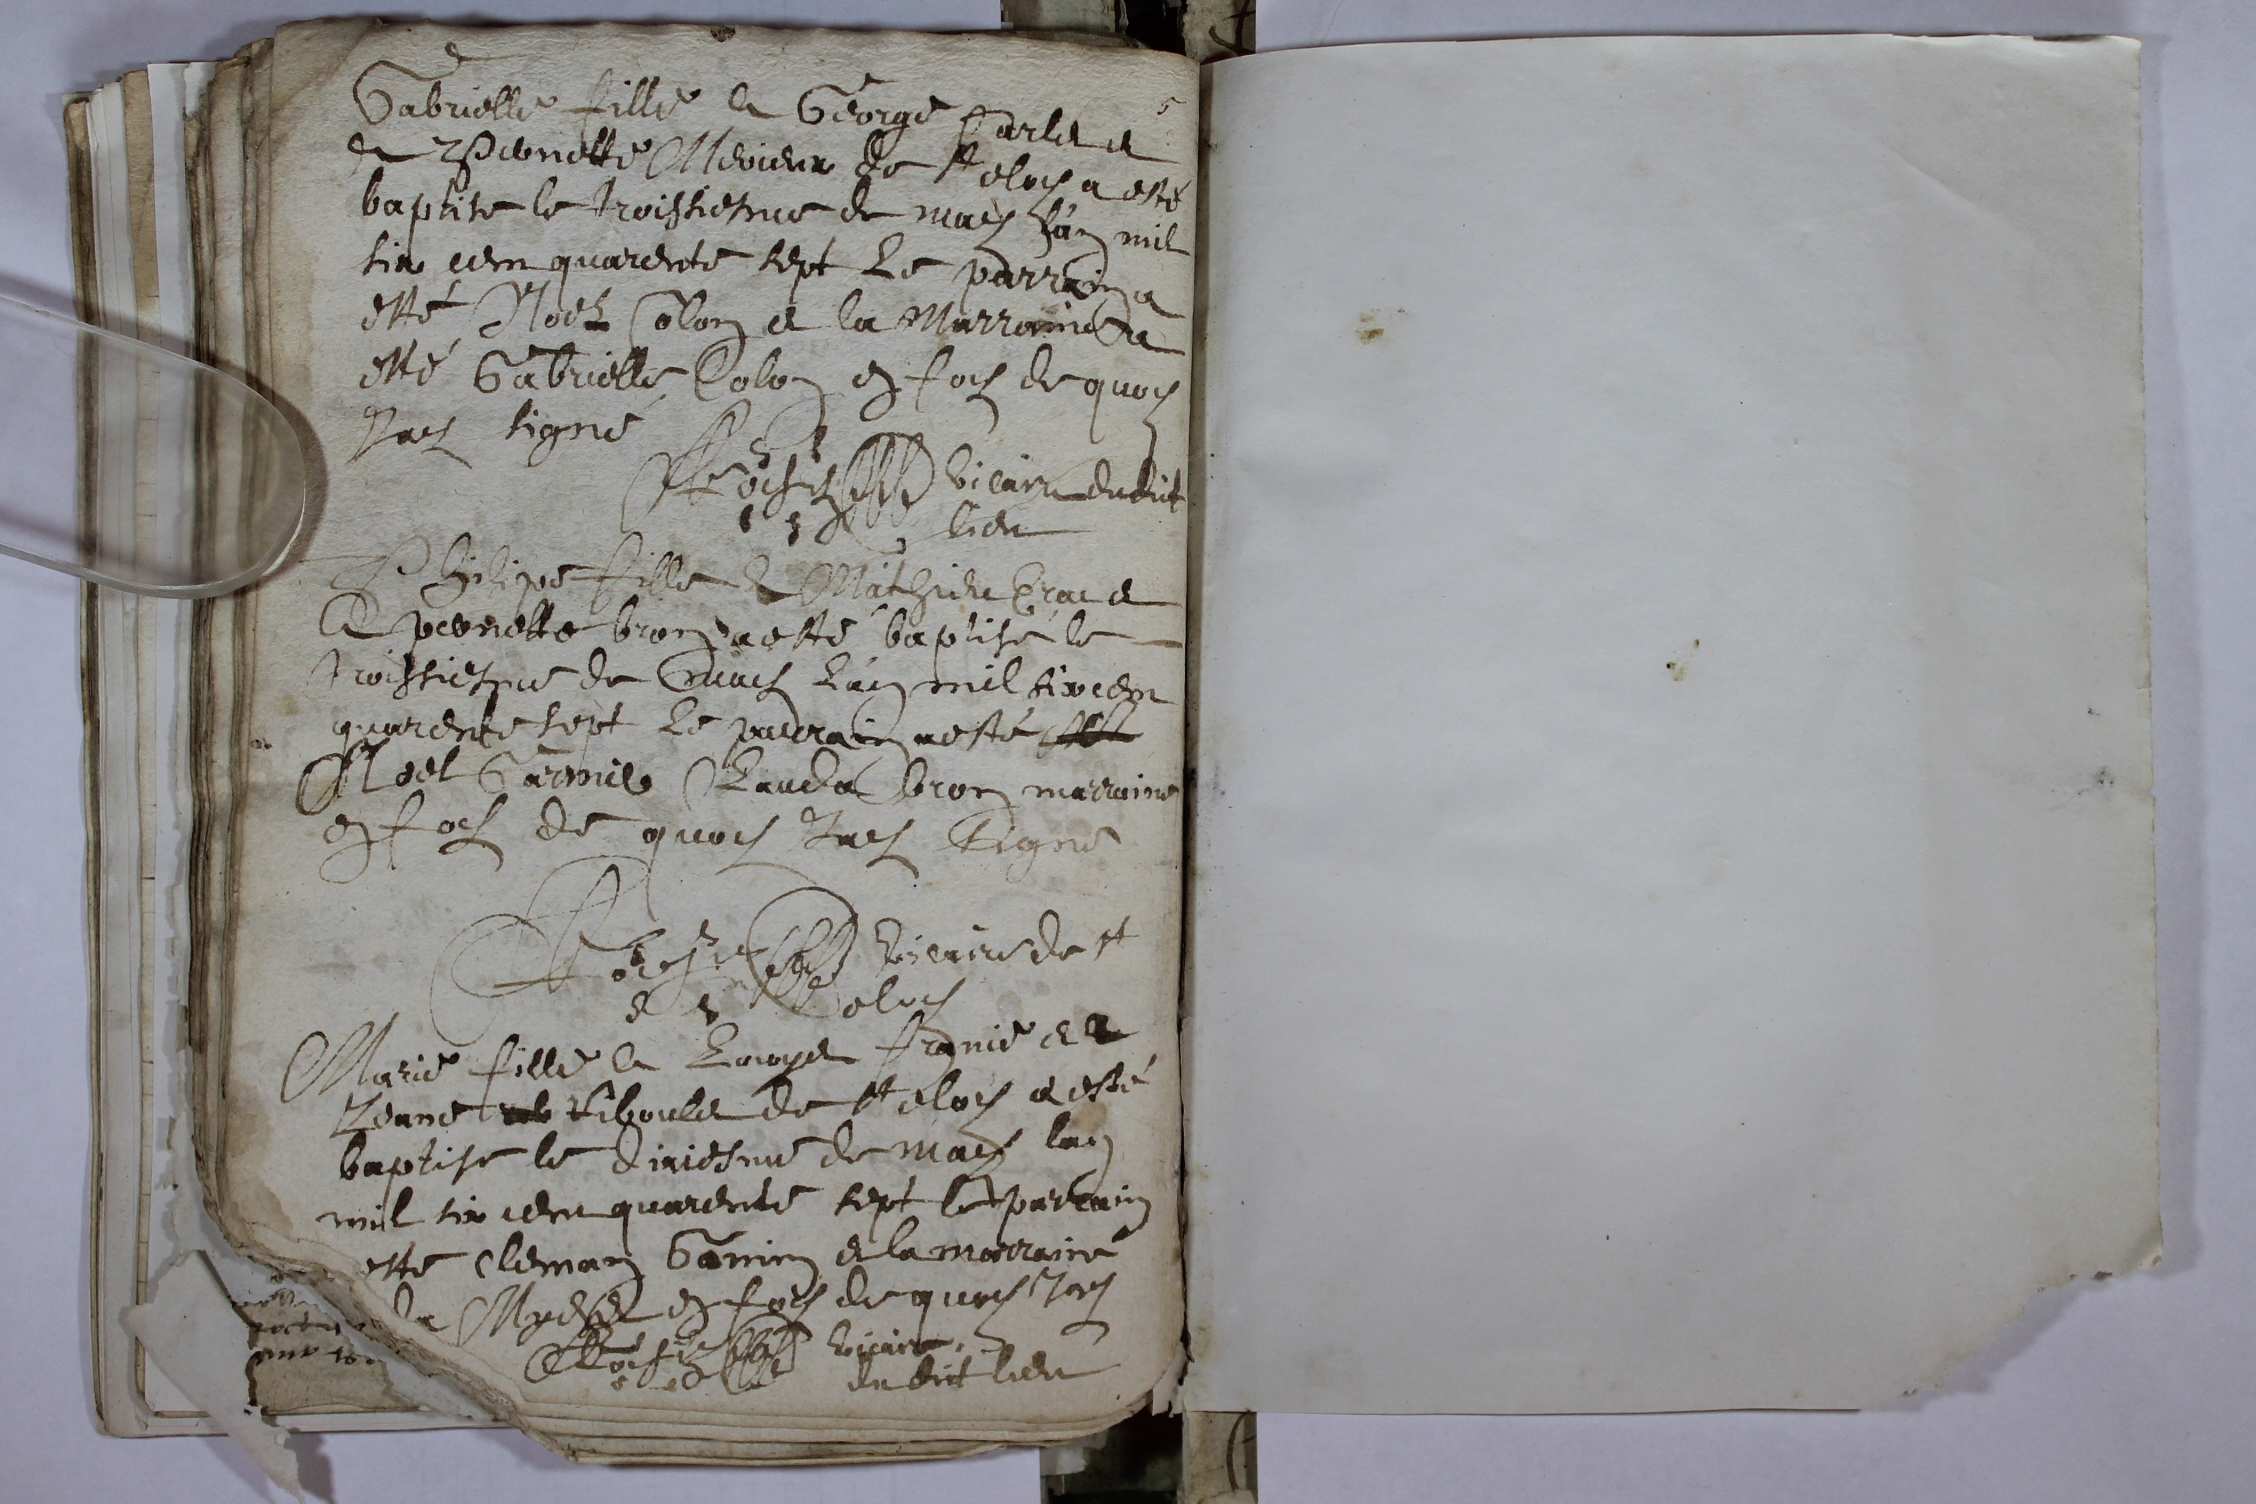 Gabrielle fille a George Carle et
a Peronette Mercieur de st eloy a esté
baptise le troissiesme de may lan mil
six cem quarente sept Le parrain a
esté Noel Colon et la Marraine a
esté Gabrielle Colon en foy de quoy
Jay signé
vicaire dudit
lieu
Philipe fille a Mathieu et
a peronette bron a esté baptisé le
troissiesme de may Lan mil six cem
quarente sept Le parrain a esté
Noel Garmie Clauda bron marraine
en foy de quoy Jay signé
vicaire de st
eloy
Marie fille a Louys et a
Jeane Riboule de st eloy a esté
baptise le dixiesme de may lan
mil six cem quarente sept le parrain
esté Cleman Gonin et la marraine
en foy de quoy Jay
vicaire
dudit lieu